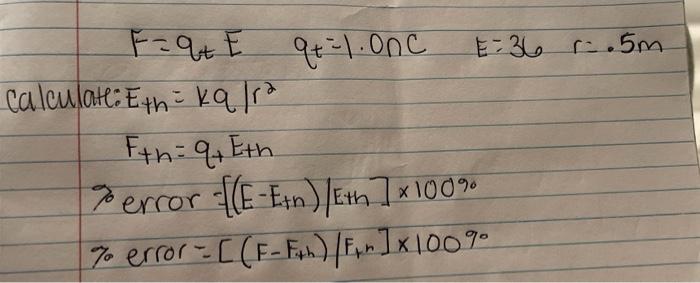 F=qtE qt=1.0nC E=36 r=.5m
calculate: Eth=kq/r²
Fth=qtEth
% error=[(E-Eth)/Eth]x100%
% error=[(F-Fth)/Fth]x100%